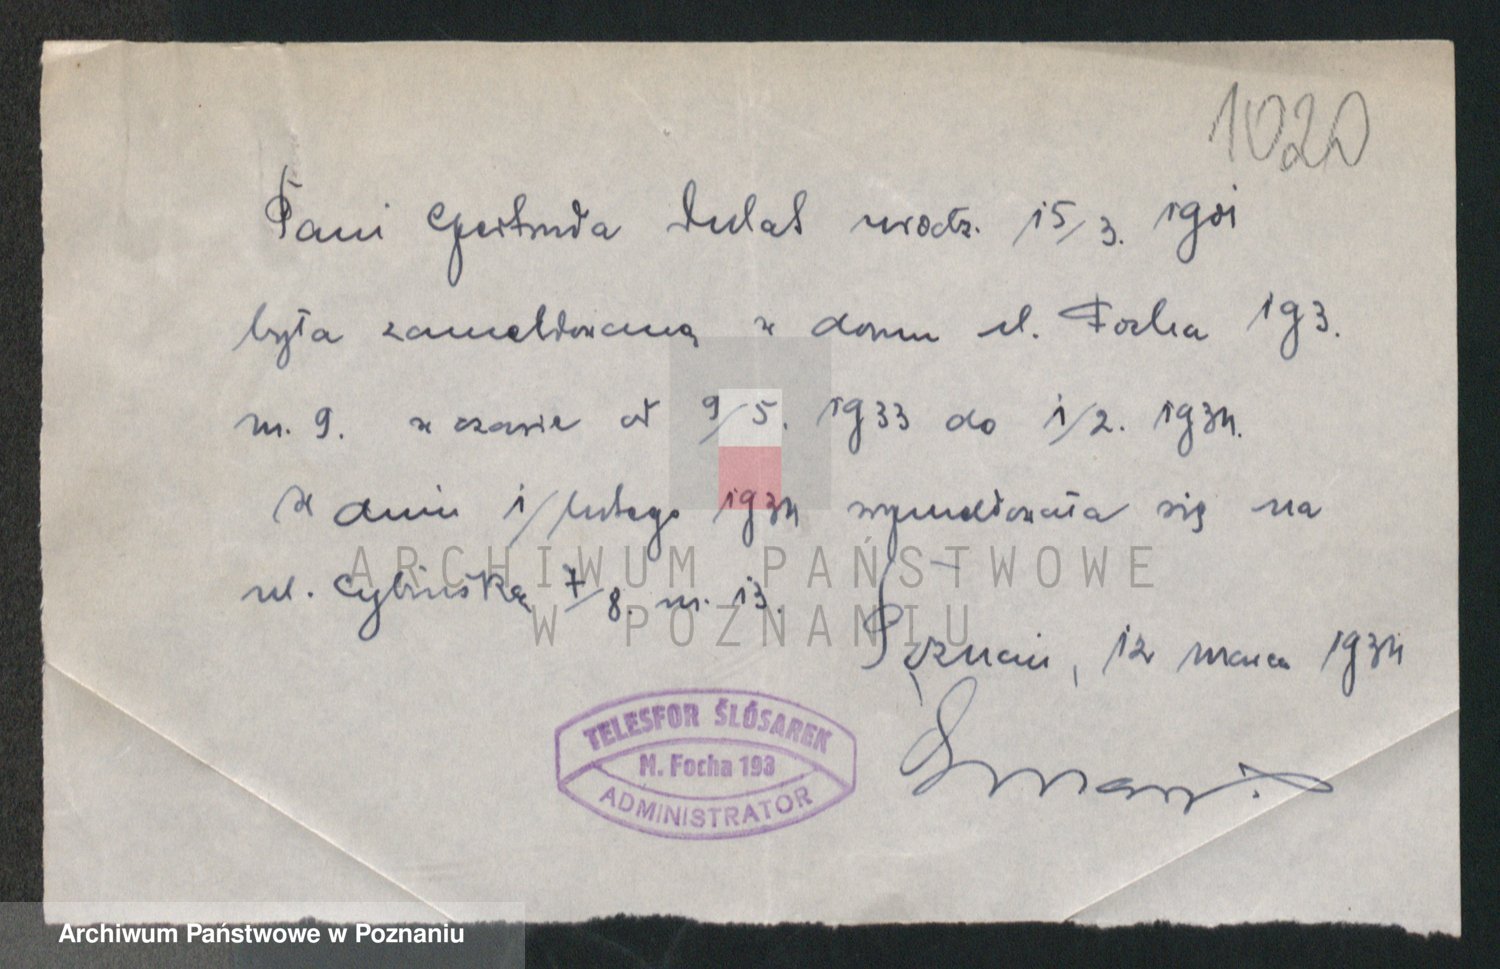 1020
Pani Gertruda Dulat urodz. 15/3. 1901
była zameldowaną w domu ul. Focha 193.
m. 9. w czasie od 9/5. 1933 do 1/2. 1934.
W dniu 1/lutego 1934 wymeldowała się na
ul. Cybińską 7/8. m. 13.
Poznań, 12 marca 1934
TELESFOR ŚLÓSAREK
M. Focha 193
ADMINISTRATOR
ARCHIWUM PAŃSTWOWE
W POZNANIU
Archiwum Państwowe w Poznaniu